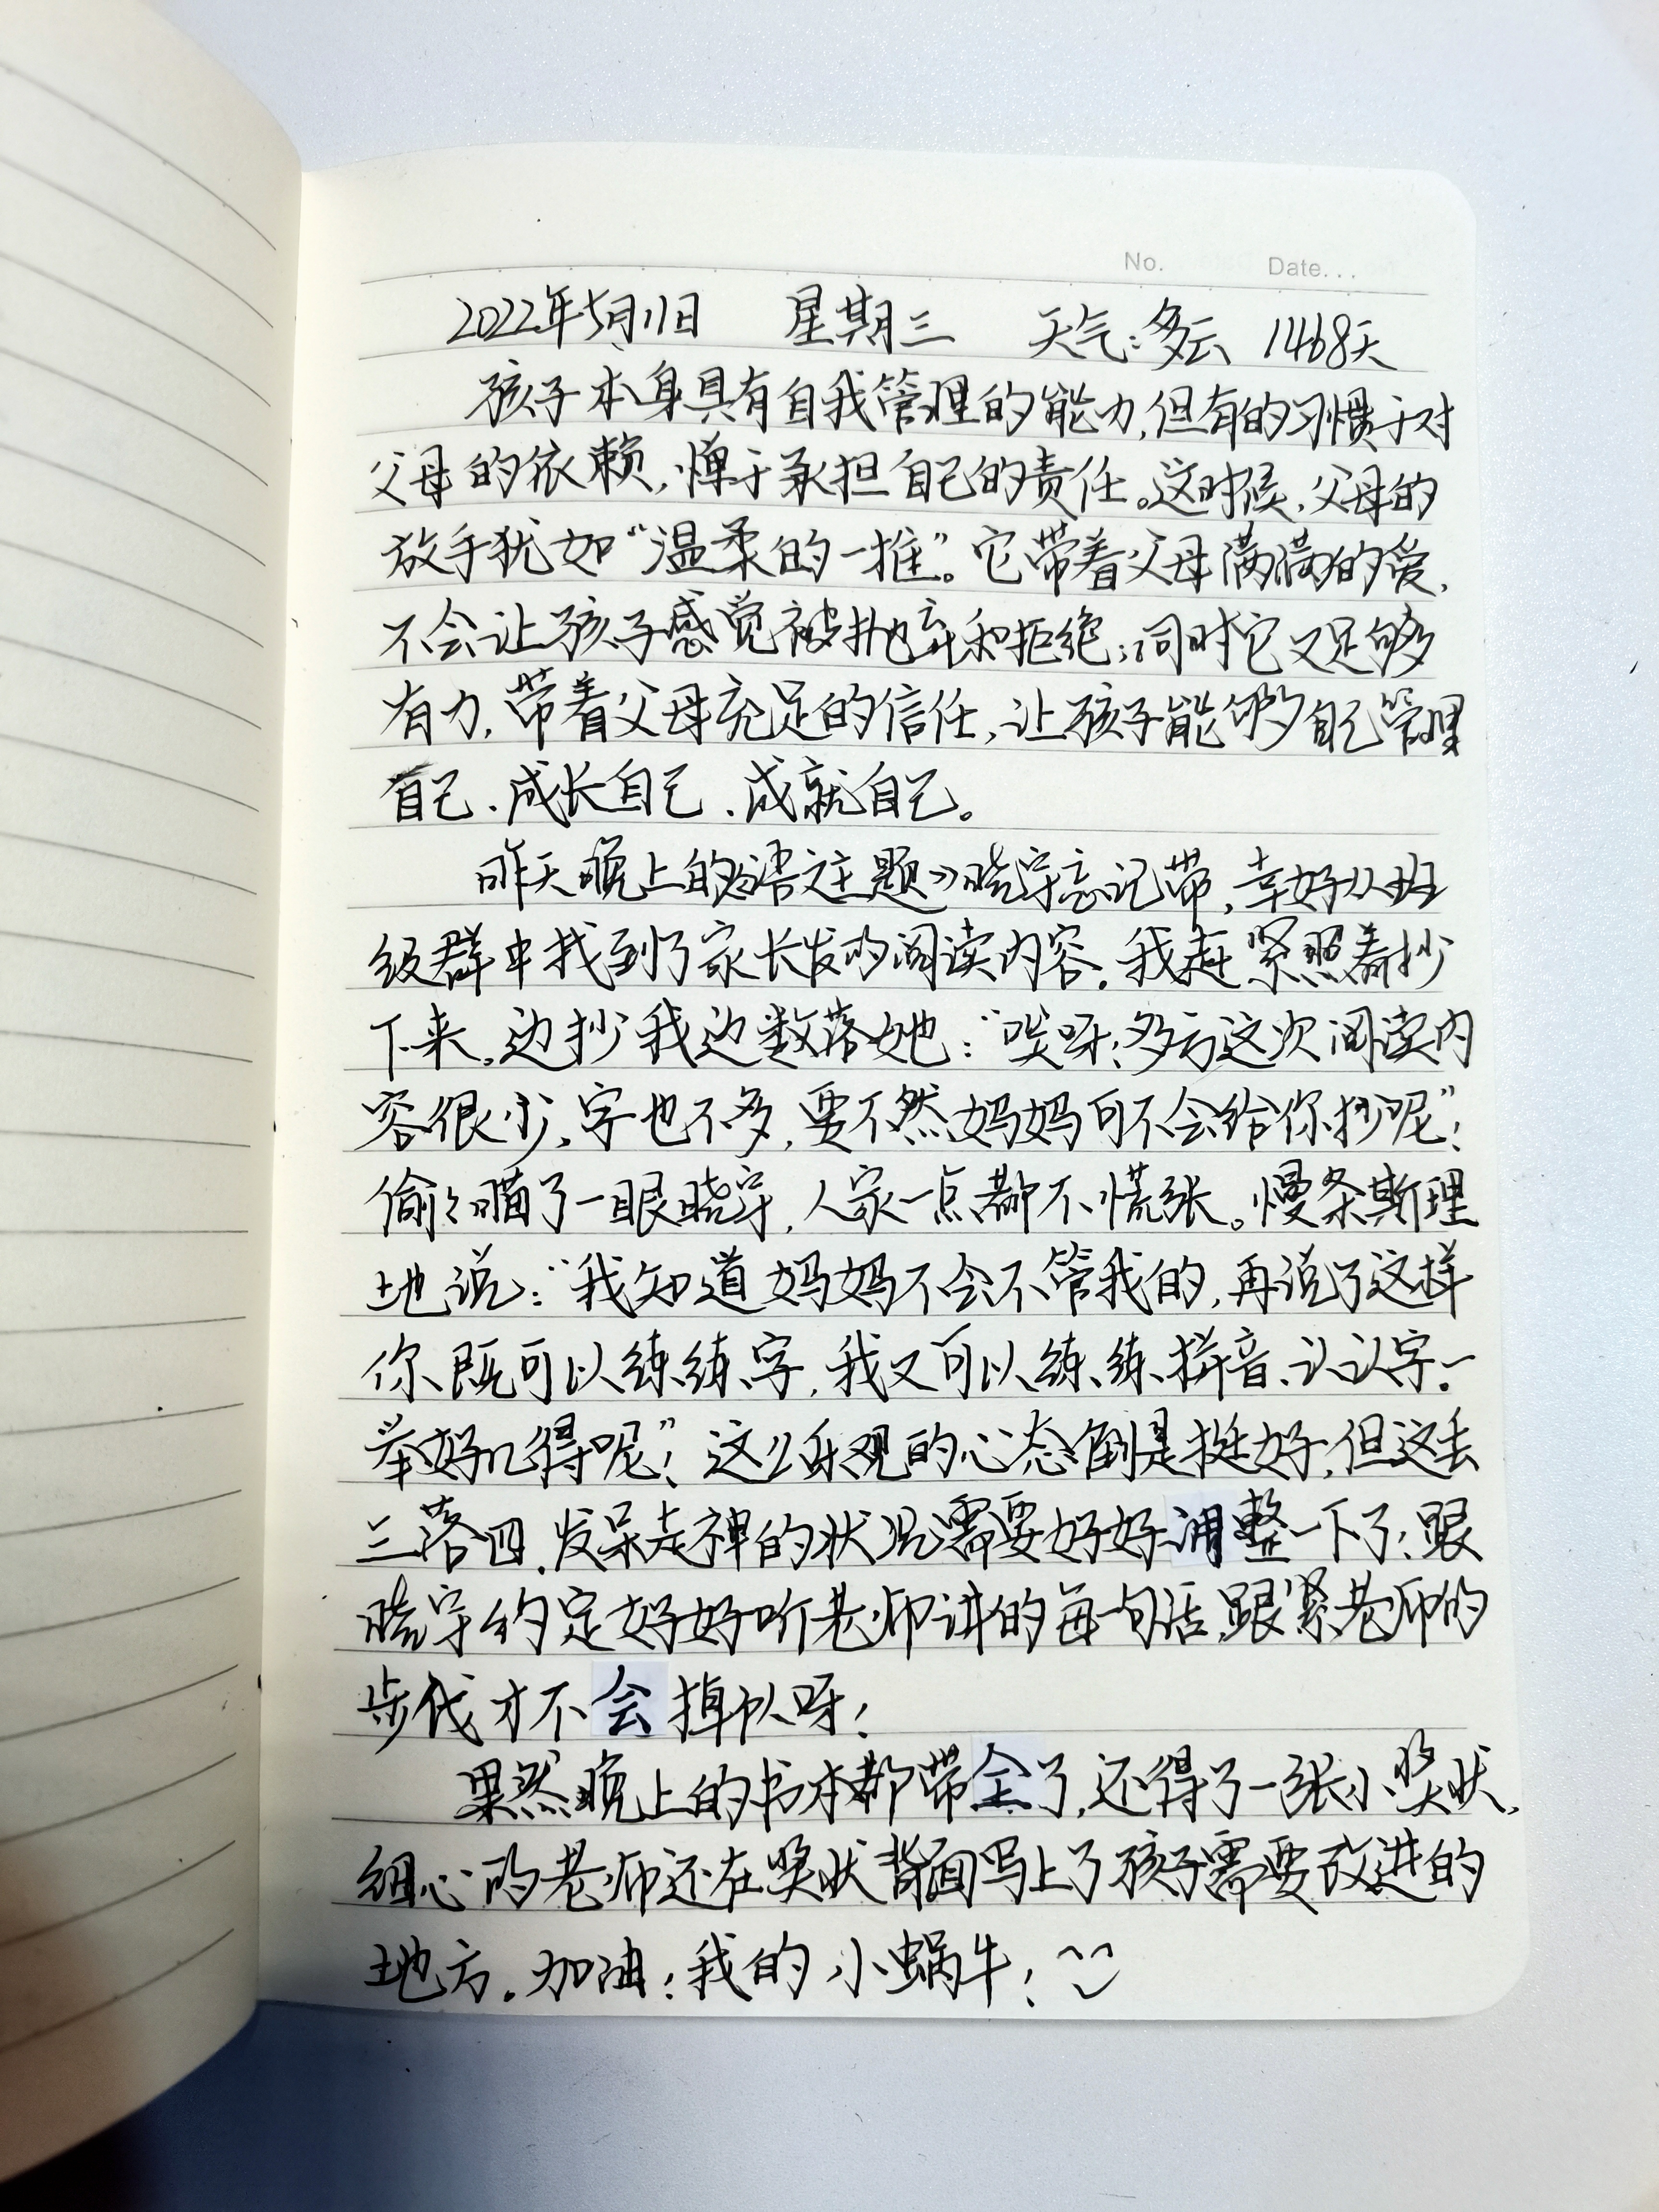 No.      Date...
2022年5月11日 星期三 天气:多云 1468天
孩子本身具有自我管理的能力,但有的习惯于对
父母的依赖,惮于承担自己的责任。这时候,父母的
放手犹如“温柔的一推”。它带着父母满满的爱,
不会让孩子感觉被抛弃和拒绝;同时它又足够
有力,带着父母充足的信任,让孩子能够自己管理
自己、成长自己、成就自己。
昨天晚上的《语文主题》晓宇忘记带,幸好从班
级群中找到了家长发的阅读内容。我赶紧照着抄
下来,边抄我边数落她:“哎呀!多亏这次阅读内
容很少,字也不多,要不然妈妈可不会给你抄呢”!
偷偷瞄了一眼晓宇,人家一点都不慌张。慢条斯理
地说:“我知道妈妈不会不管我的,再说了这样
你既可以练练字,我又可以练练拼音、认认字。一
举好几得呢”!这么乐观的心态倒是挺好,但这丢
三落四、发呆走神的状况需要好好调整一下了!跟
晓宇约定好好听老师讲的每一句话,跟紧老师的
步伐才不会掉队呀!
果然晚上的书本都带全了,还得了一张小奖状,
细心的老师还在奖状背面写上了孩子需要改进的
地方。加油!我的小蜗牛!